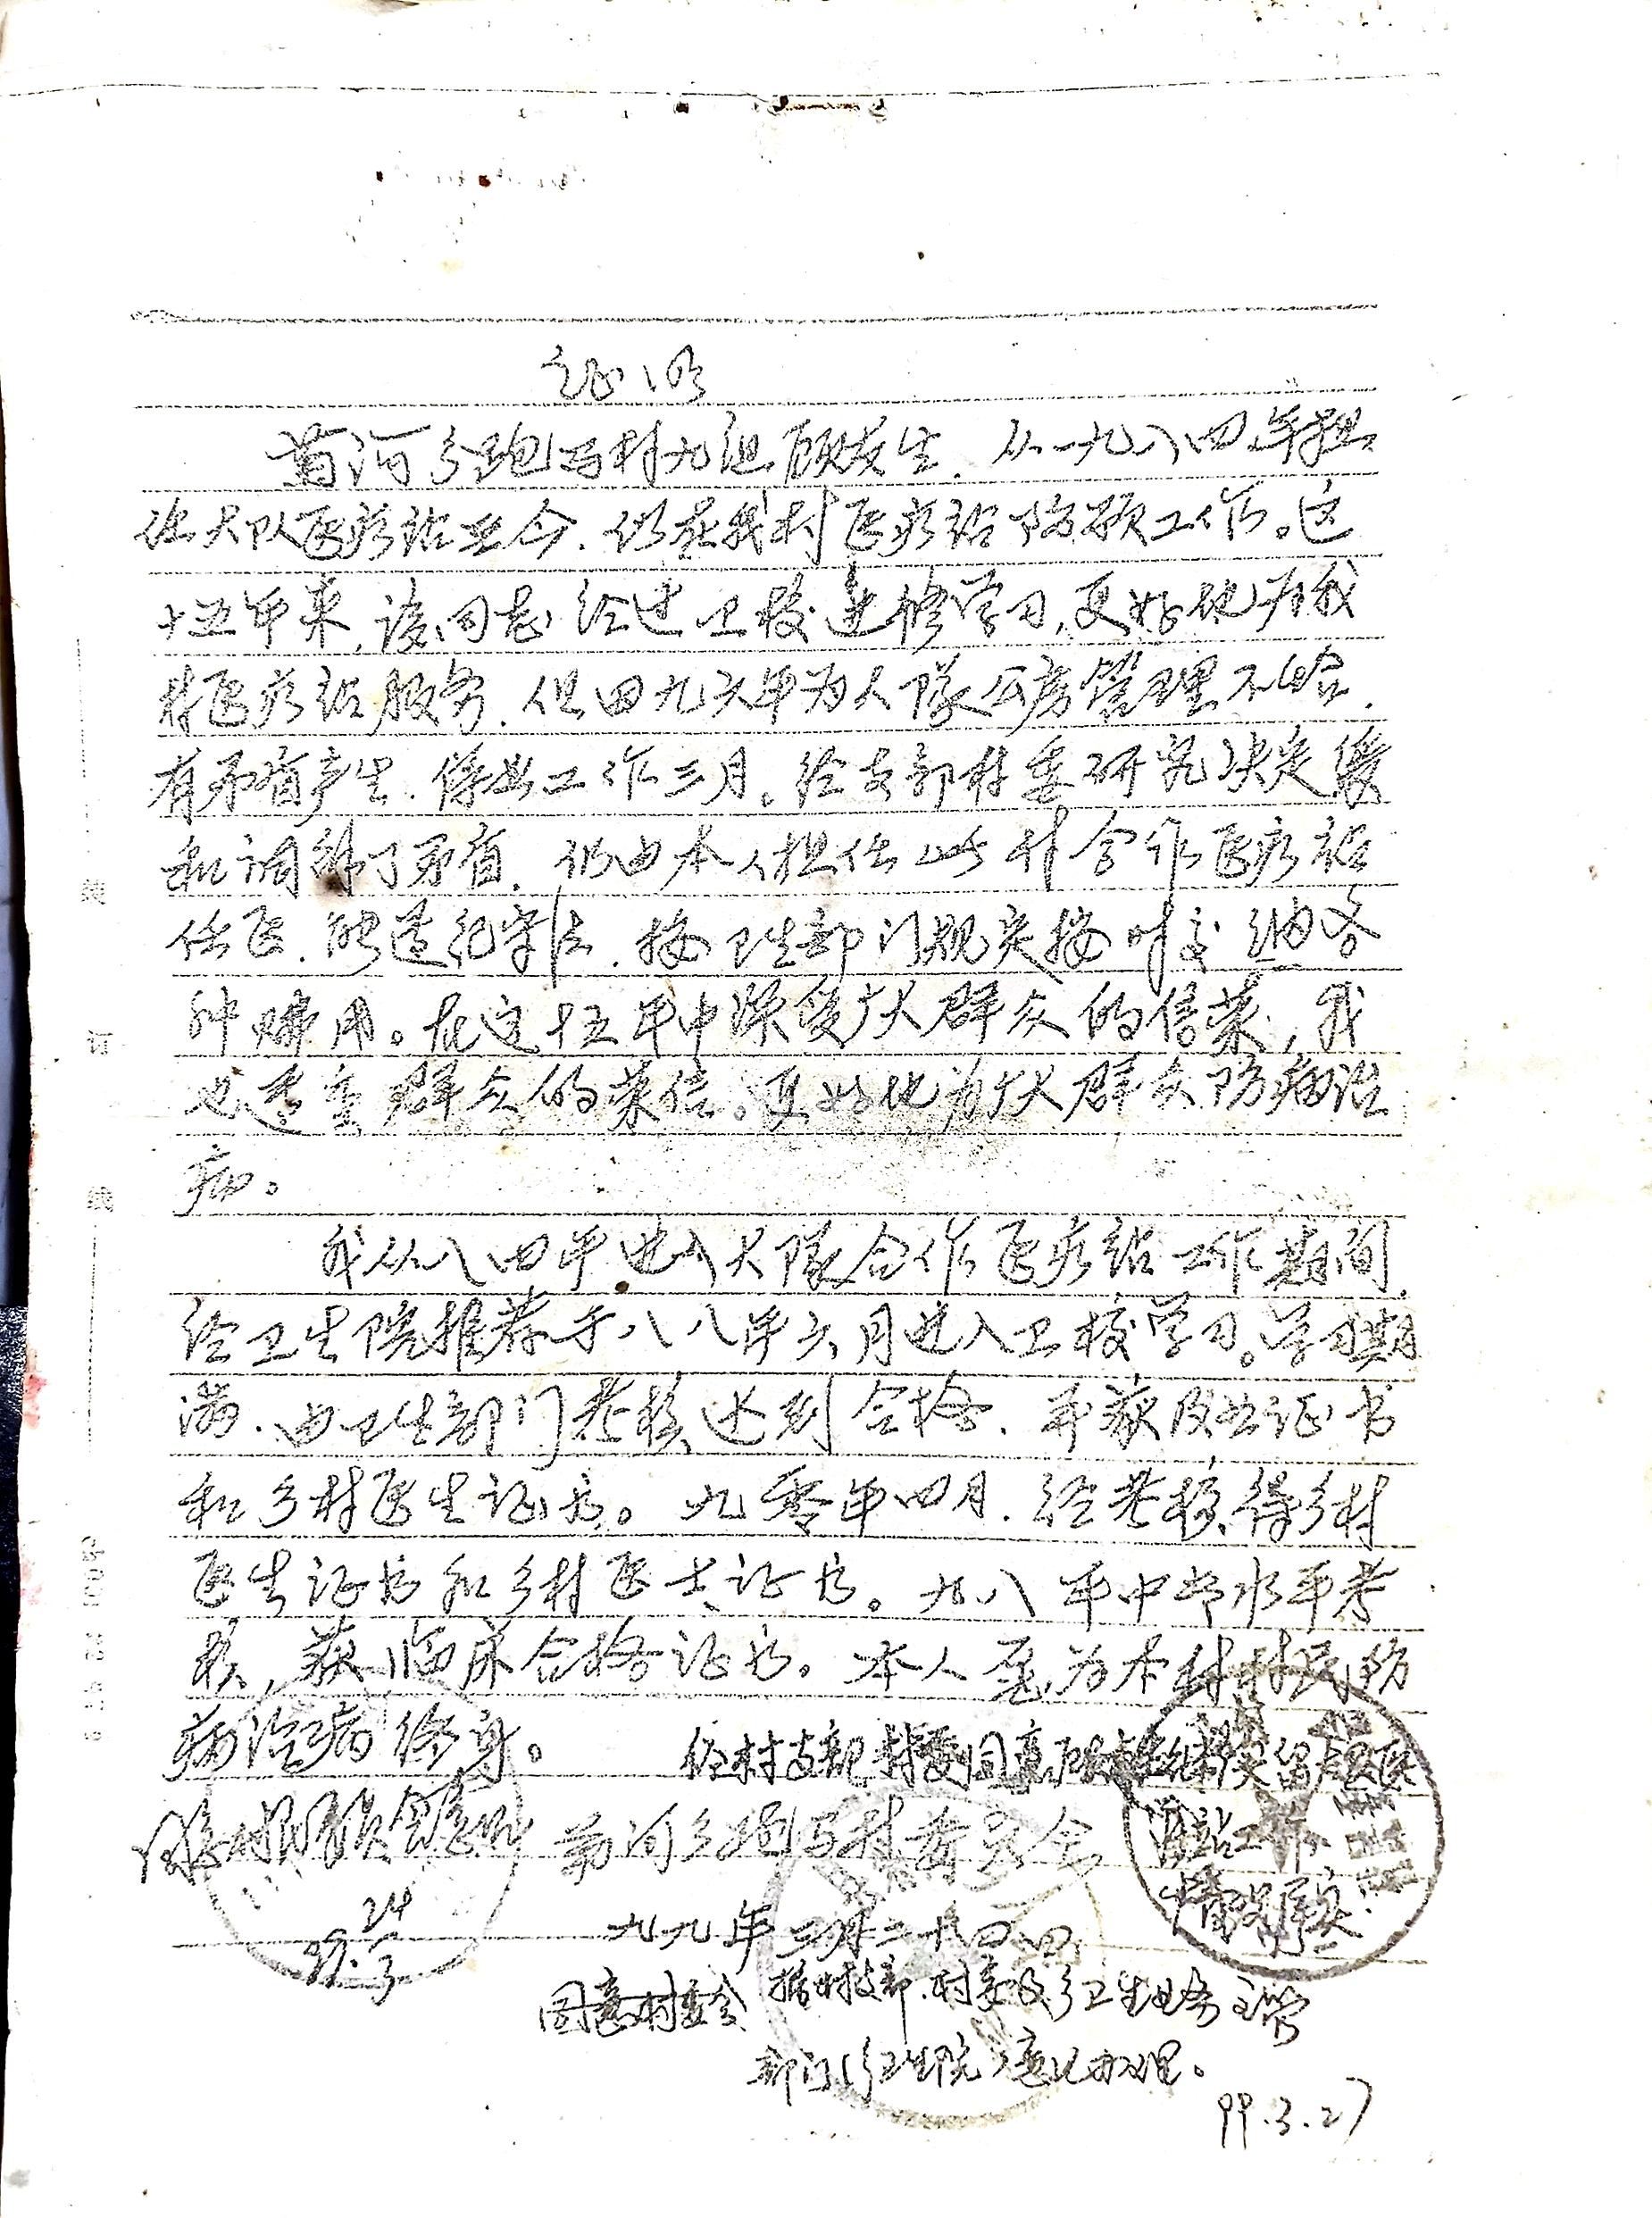 证明
黄河乡跑马村九组顾发生．从一九八四年担
任大队医疗站至今．仍在我村医疗站防预工作。这
十五年来，该同志经过卫校进修学习，更好地为我
村医疗站服务．但因九六年为人队公房管理不
有矛盾产生．停止工作三月。经支部村委研究决定缓
和调解了矛盾．仍由本人担任此村合作医疗站
任医．能遵纪守法．按卫生部门规定按时交纳各
种费用。在这十五年中深受广大群众的信来，我
也尊重群众的来信。更好地为广大群众防病治
病。
我从八四年进入大队合作医疗站工作期间，
经卫生院推荐于八八年六月进入卫校学习。学习期
满．由卫生部门考核达到合格．并获及毕业证书
和乡村医生证书。九零年四月．经考核得乡村
医生证书和乡村医士证书。九八年中专水平考
核，获临床合格证书。本人愿为本村村民防
病治病终身。
经村支部村委同意
黄河乡跑马村委员会
工作
情况属实
24
99.3
九九年三月二十四日
同意村委会 据村支部．村委及乡卫生业务主管
部门(乡卫生院)意见办理。
99.3.27